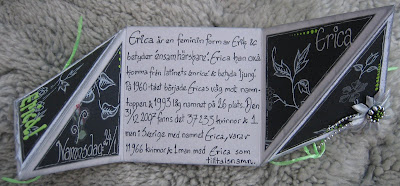 Namnsdag:24/1
Erica är en feminin form av Erik &
betyder 'ensam härskare'. Erica kan oxå
komma från latinets 'enrice' & betyda 'ljung'.
På 1960-talet började Ericas våg mot namn-
toppen & 1993 låg namnet på 26 plats. Den
31/12 2007 fanns det 37235 kvinnor & 1
man i Sverige med namnet Erica, varav
11966 kvinnor & 1 man med Erica som
tilltalsnamn.
Erica